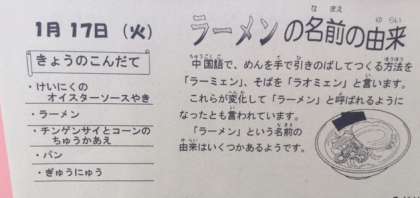 1月17日（火）
きょうのこんだて
・けいにくの
オイスターソースやき
・ラーメン
・チンゲンサイとコーンの
ちゅうかあえ
・パン
・ぎゅうにゅう
ラーメンの名前の由来
なまえ
ゆらい
中国語で、めんを手で引きのばしてつくる方法を
「ラーミェン」、そばを「ラオミェン」と言います。
これらが変化して「ラーメン」と呼ばれるように
なったとも言われています。
「ラーメン」という名前の
由来はいくつかあるようです。